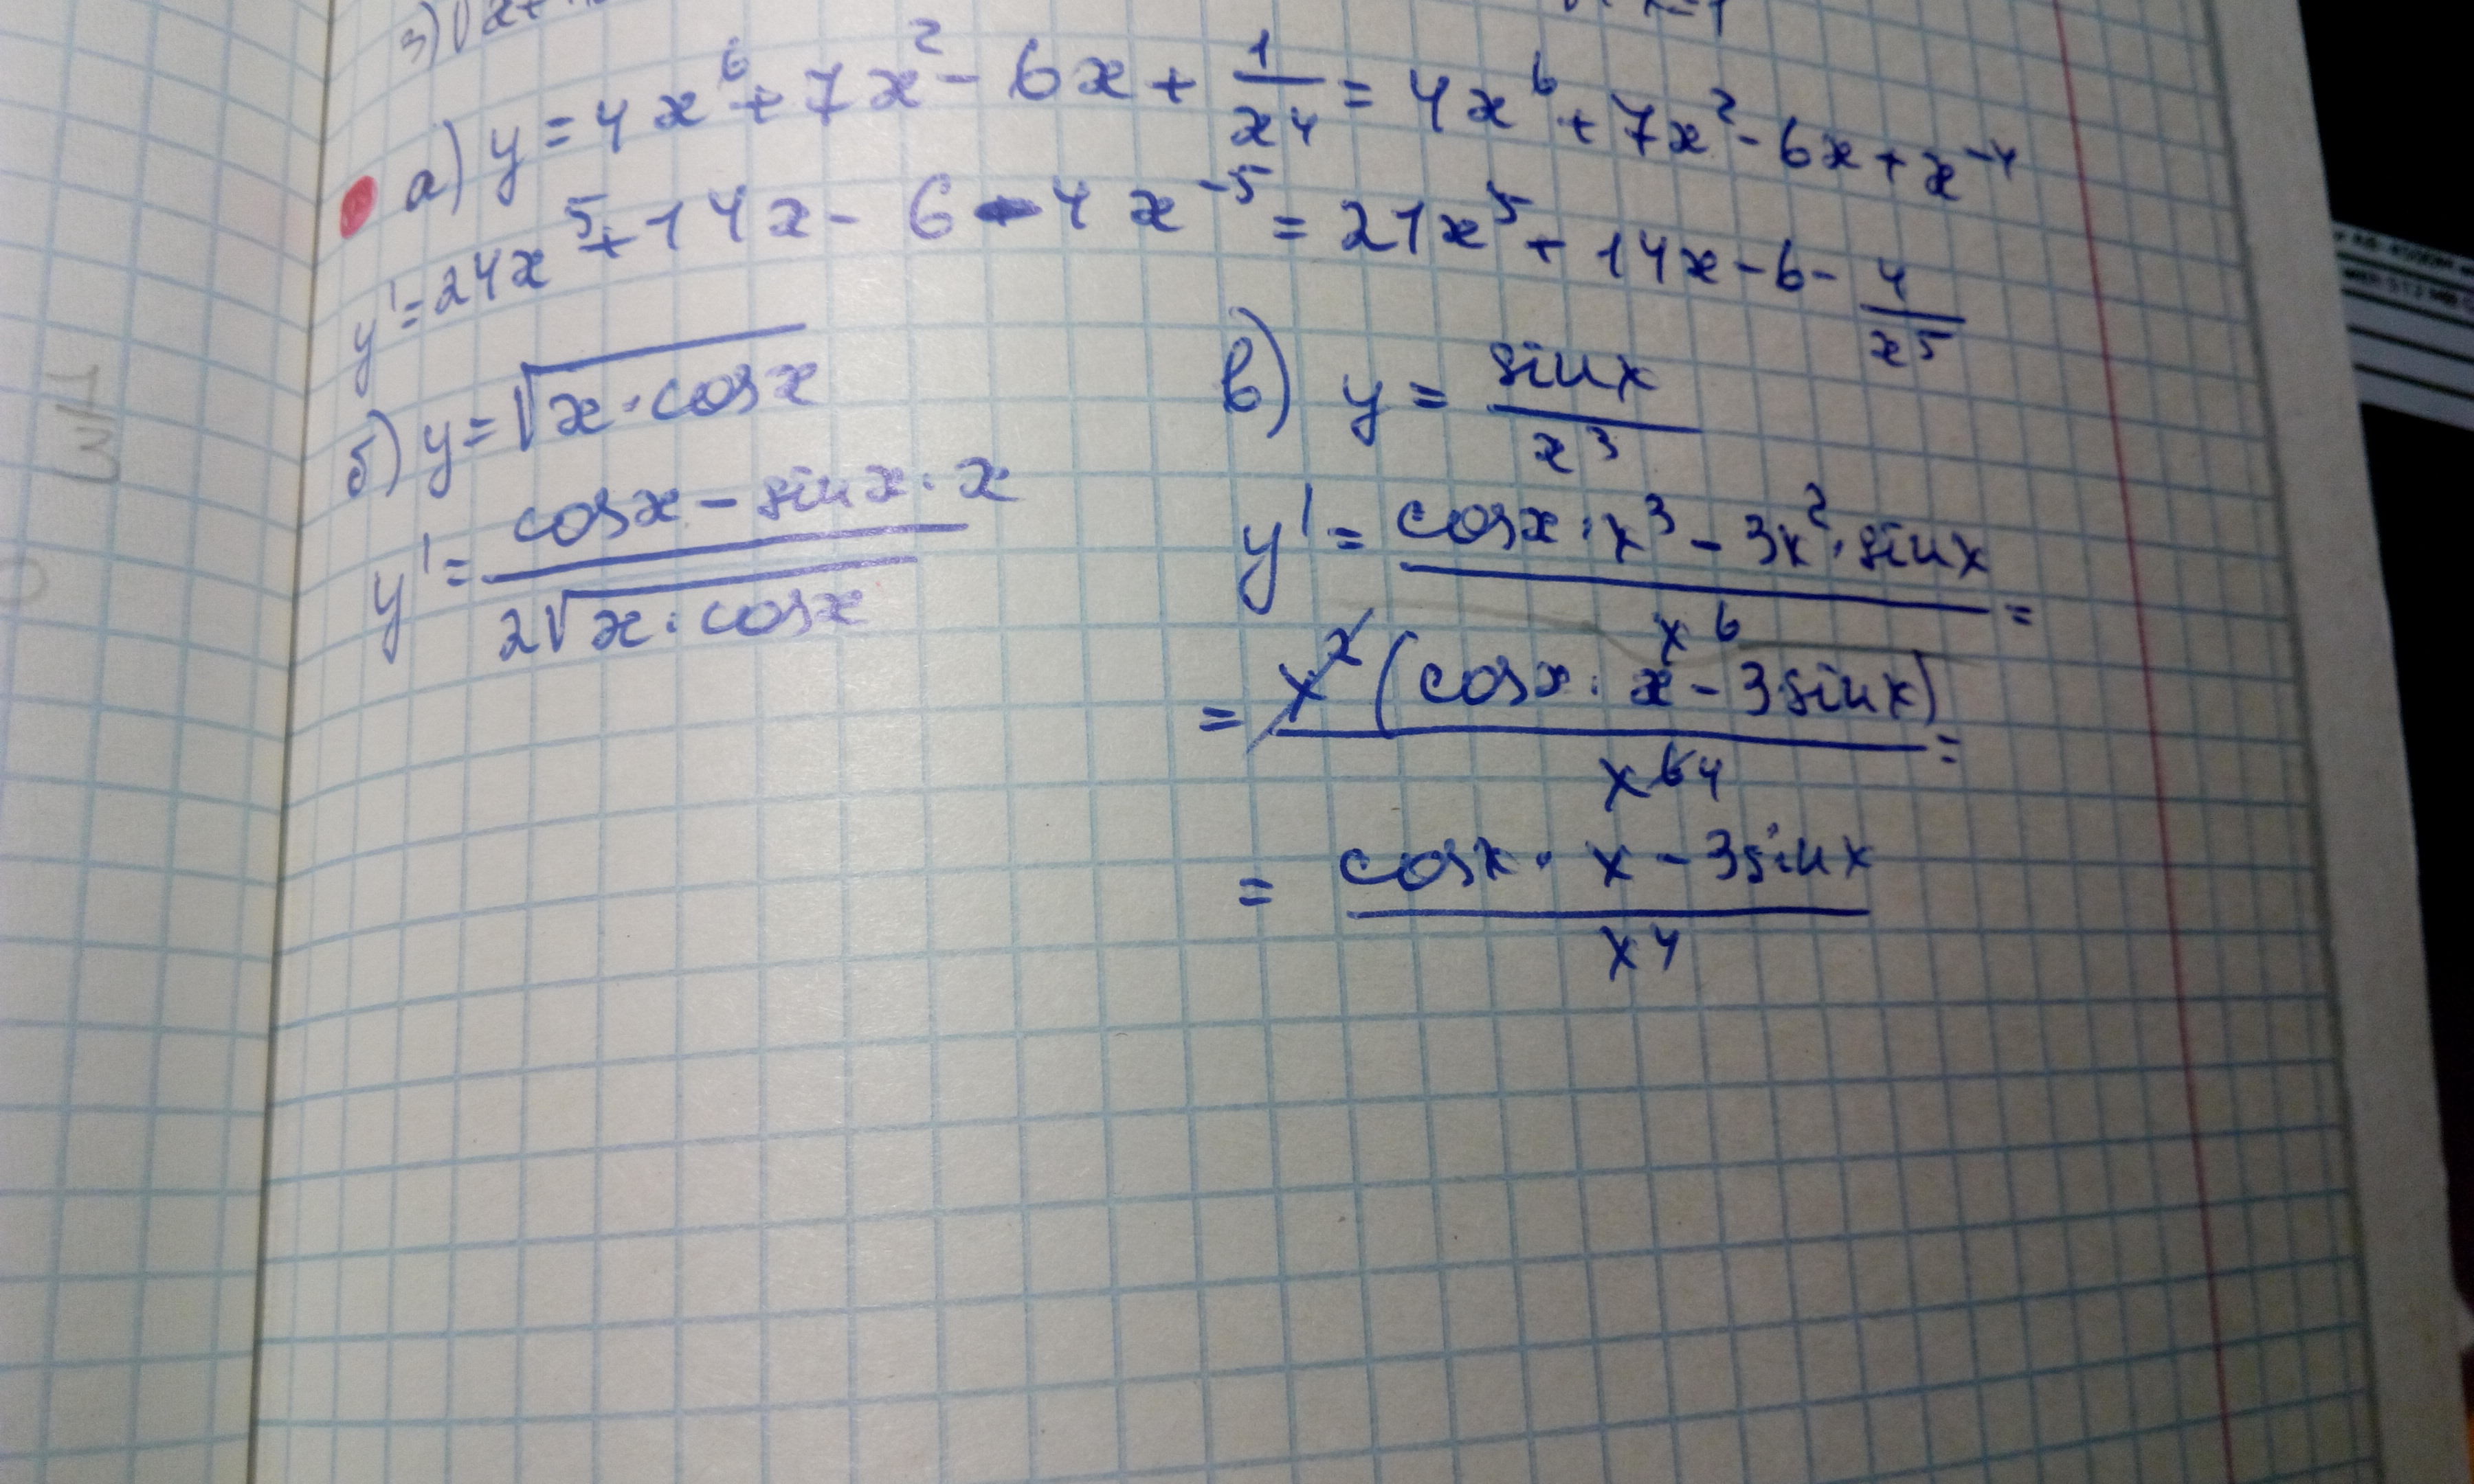 3) √x+
x=1
a) y = 4x⁶ + 7x² - 6x + 1/x⁴ = 4x⁶ + 7x² - 6x + x⁻⁴
y' = 24x⁵ + 14x - 6 - 4x⁻⁵ = 21x⁵ + 14x - 6 - 4/x⁵
б) y = √(x · cosx)
y' = (cosx - sinx · x)/(2√(x · cosx))
в) y = sinx/x³
y' = (cosx · x³ - 3x² · sinx)/x⁶ =
= x²(cosx · x - 3sinx)/x⁶ ⁴ =
= (cosx · x - 3sinx)/x⁴